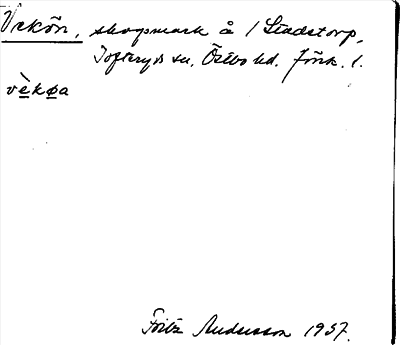 Vekön, skogsmark å 1 Lindstorp,
Tofteryds sn, Östbo hd. Jönk. l.
vèkøa
Fritz Andersson 1957.